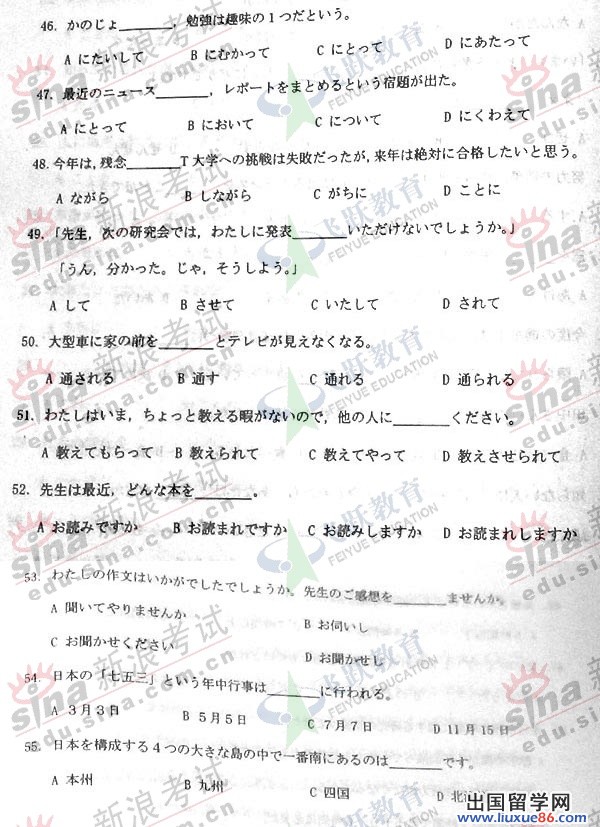 46. かのじょ________，勉強は趣味の１つだという。
A にたいして B にむかって C にとって D にあたって
47. 最近のニュース________，レポートをまとめるという宿題が出た。
A にとって B において C について D にくわえて
48. 今年は，残念________T 大学への挑戦は失敗だったが，来年は絶対に合格したいと思う。
A ながら B しながら C がちに D ことに
49. 「先生，次の研究会では，わたしに発表________いただけないでしょうか。」
「うん，分かった。じゃ，そうしよう。」
A して B させて C いたして D されて
50. 大型車に家の前を________とテレビが見えなくなる。
A 通される B 通す C 通れる D 通られる
51. わたしはいま，ちょっと教える暇がないので，他の人に________ください。
A 教えてもらって B 教えられて C 教えてやって D 教えさせられて
52. 先生は最近，どんな本を________。
A お読みですか B お読まれですか C お読みしますか D お読まれしますか
53. わたしの作文はいかがでしたでしょうか。先生のご感想を________ませんか。
A 聞いてやりませんか B お伺いし
C お聞かせください D お聞かせし
54. 日本の「七五三」という年中行事は________に行われる。
A ３月３日 B ５月５日 C ７月７日 D 11月15日
55. 日本を構成する４つの大きな島の中で一番南にあるのは________です。
A 本州 B 九州 C 四国 D 北
出国留学网
www.liuxue86.com
sina 新浪考试
edu.sina.com.cn
飞跃教育
FEIYUE EDUCATION